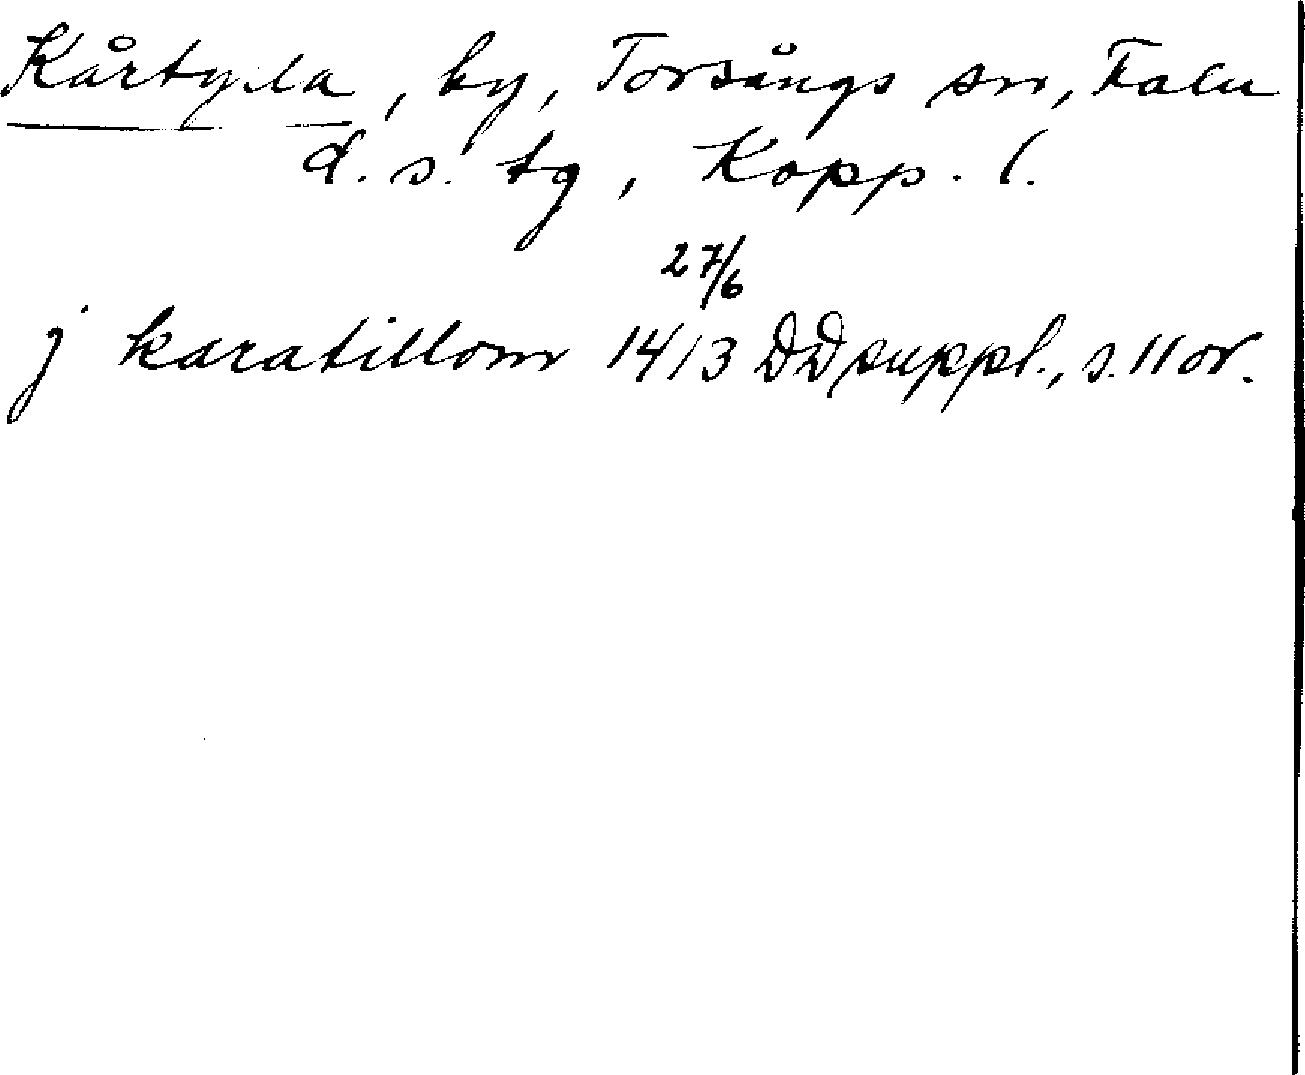 Kårtylla, by, Torsångs sn, Falu
d. s. tg, Kopp. l.
27/6
j karatillom 1413 DD suppl., s. 11 or.